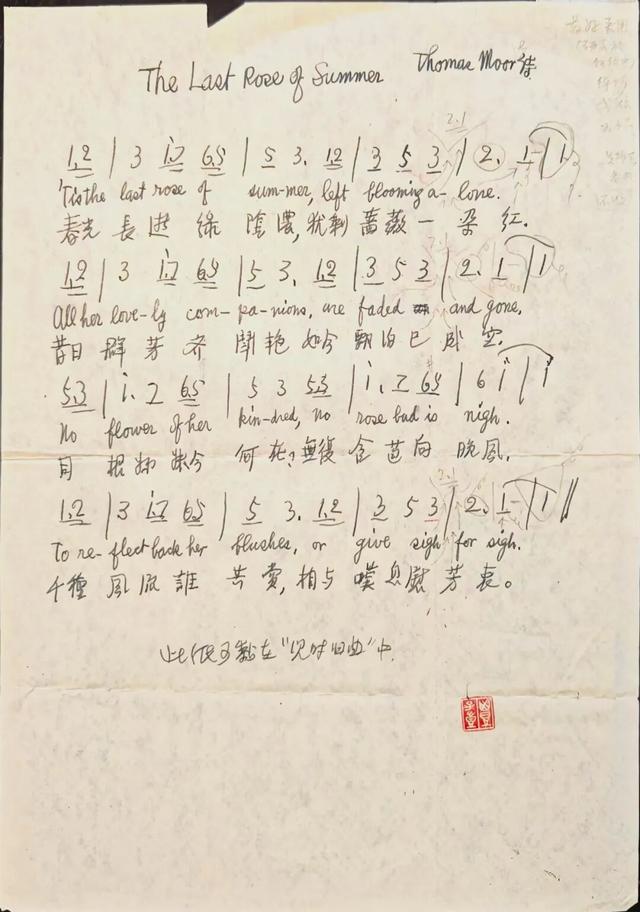 The Last Rose of Summer Thomas Moor 詩
1.2 | 3 i7 65 | 5 3. 12 | 3 5 3 | 2. 1- | 1
'Tis the last rose of sum-mer, left blooming a-lone.
春光長逝綠陰濃,猶剩薔薇一朵紅.
1.2 | 3 i7 65 | 5 3. 12 | 3 5 3 | 2. 1- | 1
All her love-ly com-pa-nions, are faded and gone,
昔日群芳齐鬪艳如今飄泊已成空.
5.3 | i. 7 65 | 5 3 53 | i. 7 65 | 6 i | i
No flower of her kin-dred, no rose bud is nigh.
何在?無復含苞向晚風,
1.2 | 3 i7 65 | 5 3. 1.2 | 3 5 3 | 2. 1- | 1 ||
To re-flect back her flushes, or give sigh for sigh.
千種風流誰共賞,相与嘆息慰芳衷。
此纸可黏在"儿时旧曲"中